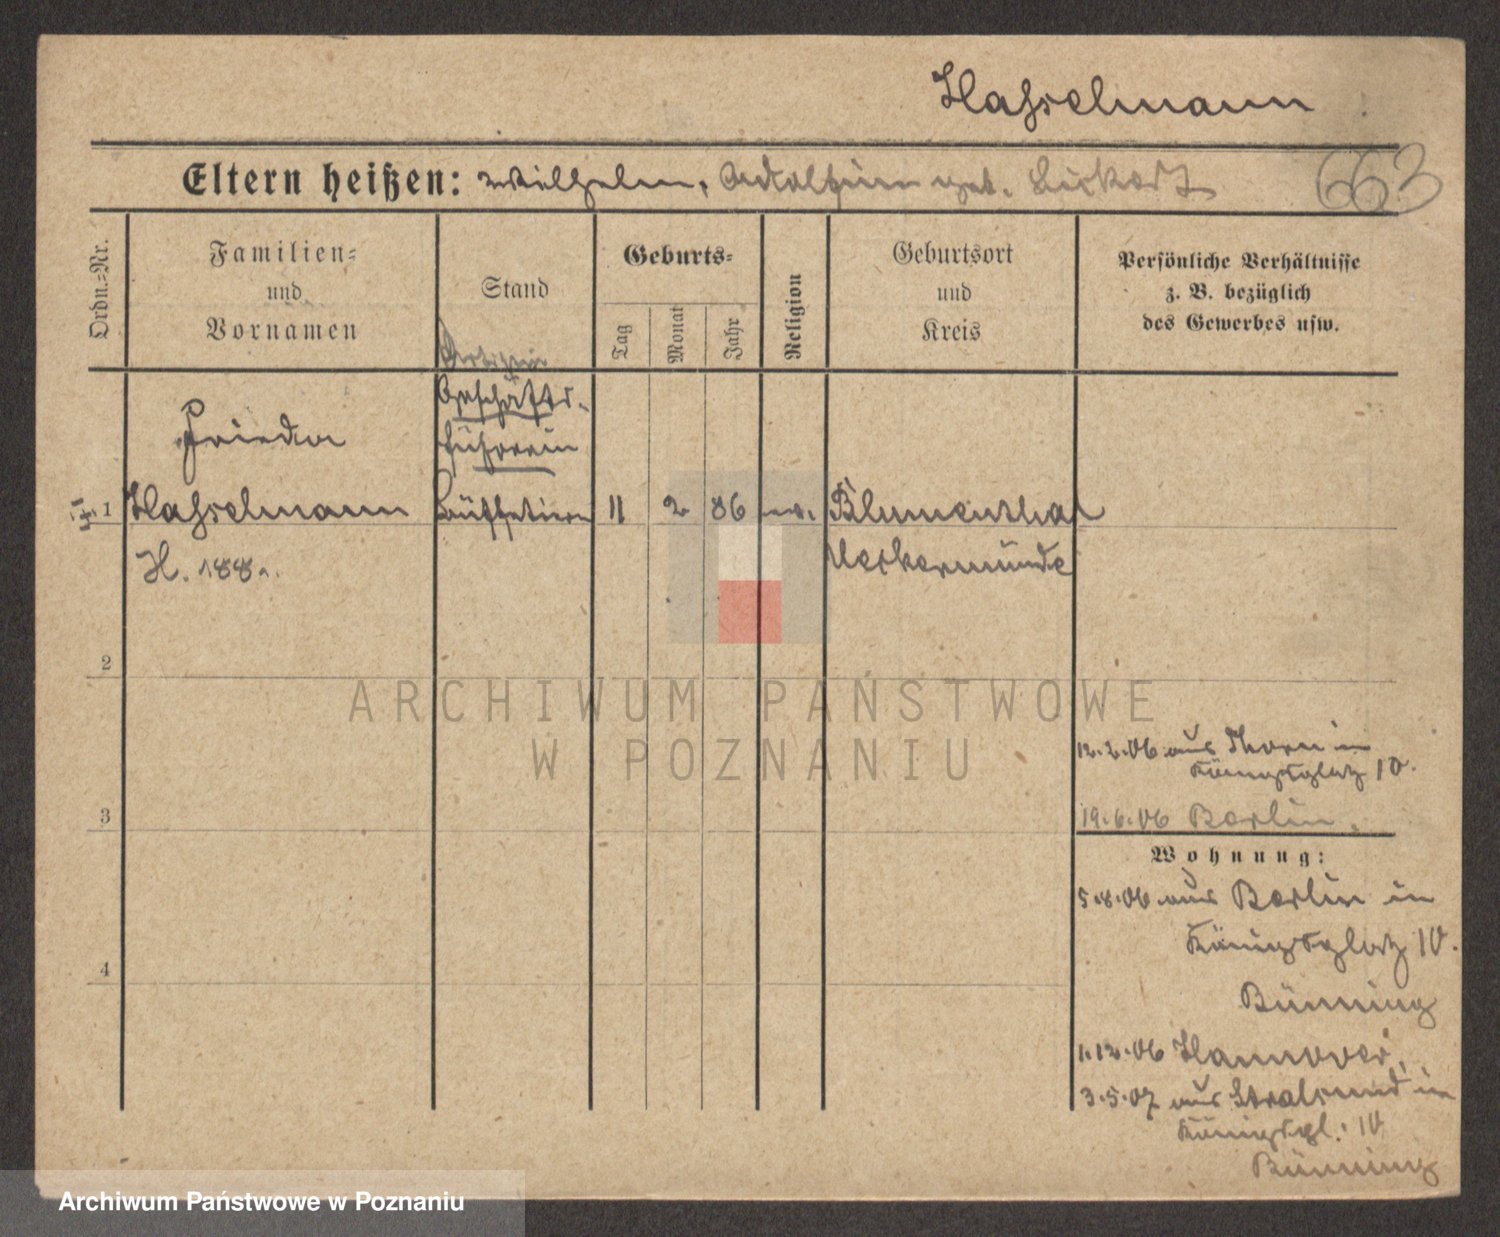 Hasselmann
663
Eltern heißen: Wilhelm, geb.
Ordn.-Nr.
Familien- und Vornamen
Stand
Geburts-
Tag
Monat
Jahr
Religion
Geburtsort und Kreis
Persönliche Verhältnisse
z. B. bezüglich
des Gewerbes usw.
Frieda
Geschäfts-
führerin
1 Hasselmann Büffetiere 11 2 86 ev. Blumenthal
H. 188 Ueckermünde
2
ARCHIWUM PAŃSTWOWE
W POZNANIU
12.2.06 aus Thorn in
Königsplatz 10.
3
19.6.06 Berlin.
Wohnung:
5.8.06 aus Berlin in
Königsplatz 10.
4
Bünning
1.12.06 Hannover,
3.5.07 aus Stralsund in
Königspl. 10
Bünning
Archiwum Państwowe w Poznaniu